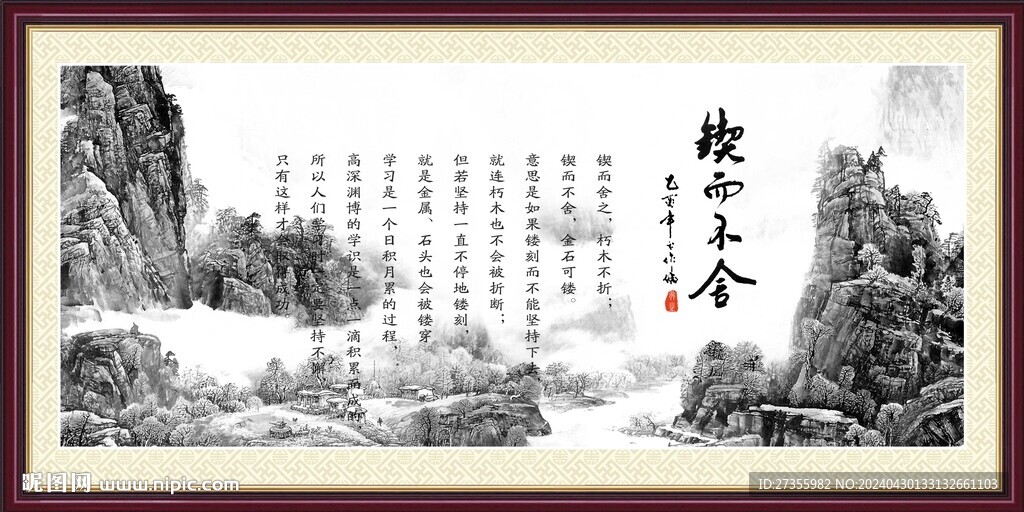 锲而不舍
锲而舍之，朽木不折；
锲而不舍，金石可镂。
意思是如果镂刻而不能坚持下去
就连朽木也不会被折断；
但若坚持一直不停地镂刻，
就是金属、石头也会被镂穿
学习是一个日积月累的过程，
高深渊博的学识是一点一滴积累而成的
所以人们学习时一定要坚持不懈
只有这样才会取得成功
昵图网 www.nipic.com
ID:27355982 NO:20240430133132661103